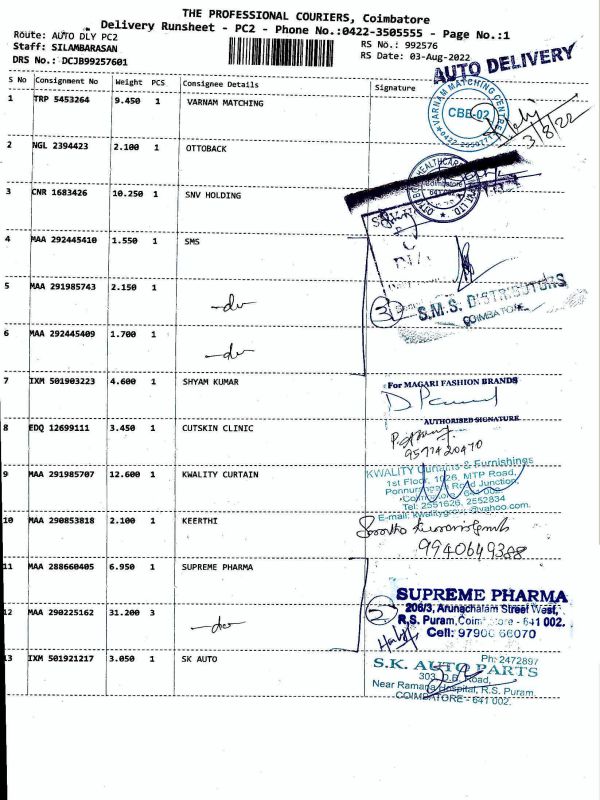 THE PROFESSIONAL COURIERS, Coimbatore
Delivery Runsheet - PC2 - Phone No.:0422-3505555 - Page No.:1
Route: AUTO DLY PC2
Staff: SILAMBARASAN
DRS No.: DCJB99257601
RS No.: 992576
RS Date: 03-Aug-2022
AUTO DELIVERY
S No Consignment No Weight PCS Consignee Details Signature
1 TRP 5453264 9.450 1 VARNAM MATCHING
VARNAM MATCHING CENTRE
CBE-02
3/8/22
2 NGL 2394423 2.100 1 OTTOBACK
Coimbatore
3 CNR 1683426 10.250 1 SNV HOLDING
4 MAA 292445410 1.550 1 SMS
5 MAA 291985743 2.150 1 -do-
3
S.M.S. DISTRIBUTORS
COIMBATORE
6 MAA 292445409 1.700 1 -do-
7 IXM 501903223 4.600 1 SHYAM KUMAR
For MAGARI FASHION BRANDS
AUTHORISED SIGNATURE
8 EDQ 12699111 3.450 1 CUTSKIN CLINIC
9 MAA 291985707 12.600 1 KWALITY CURTAIN
KWALITY Curtains & Furnishings
1st Floor, 1026, MTP Road,
Road Junction,
Coimbatore - 641 002.
Tel: 2551626, 2552834
10 MAA 290853818 2.100 1 KEERTHI
11 MAA 288660405 6.950 1 SUPREME PHARMA
SUPREME PHARMA
206/3, Arunachalam Street West,
R.S. Puram, Coimbatore - 641 002.
Cell: 97900 66070
12 MAA 290225162 31.200 3 -do-
2
13 IXM 501921217 3.050 1 SK AUTO
Ph: 2472897
S.K. AUTO PARTS
303, D.B. Road,
Near Ramana Hospital, R.S. Puram,
COIMBATORE - 641 002.